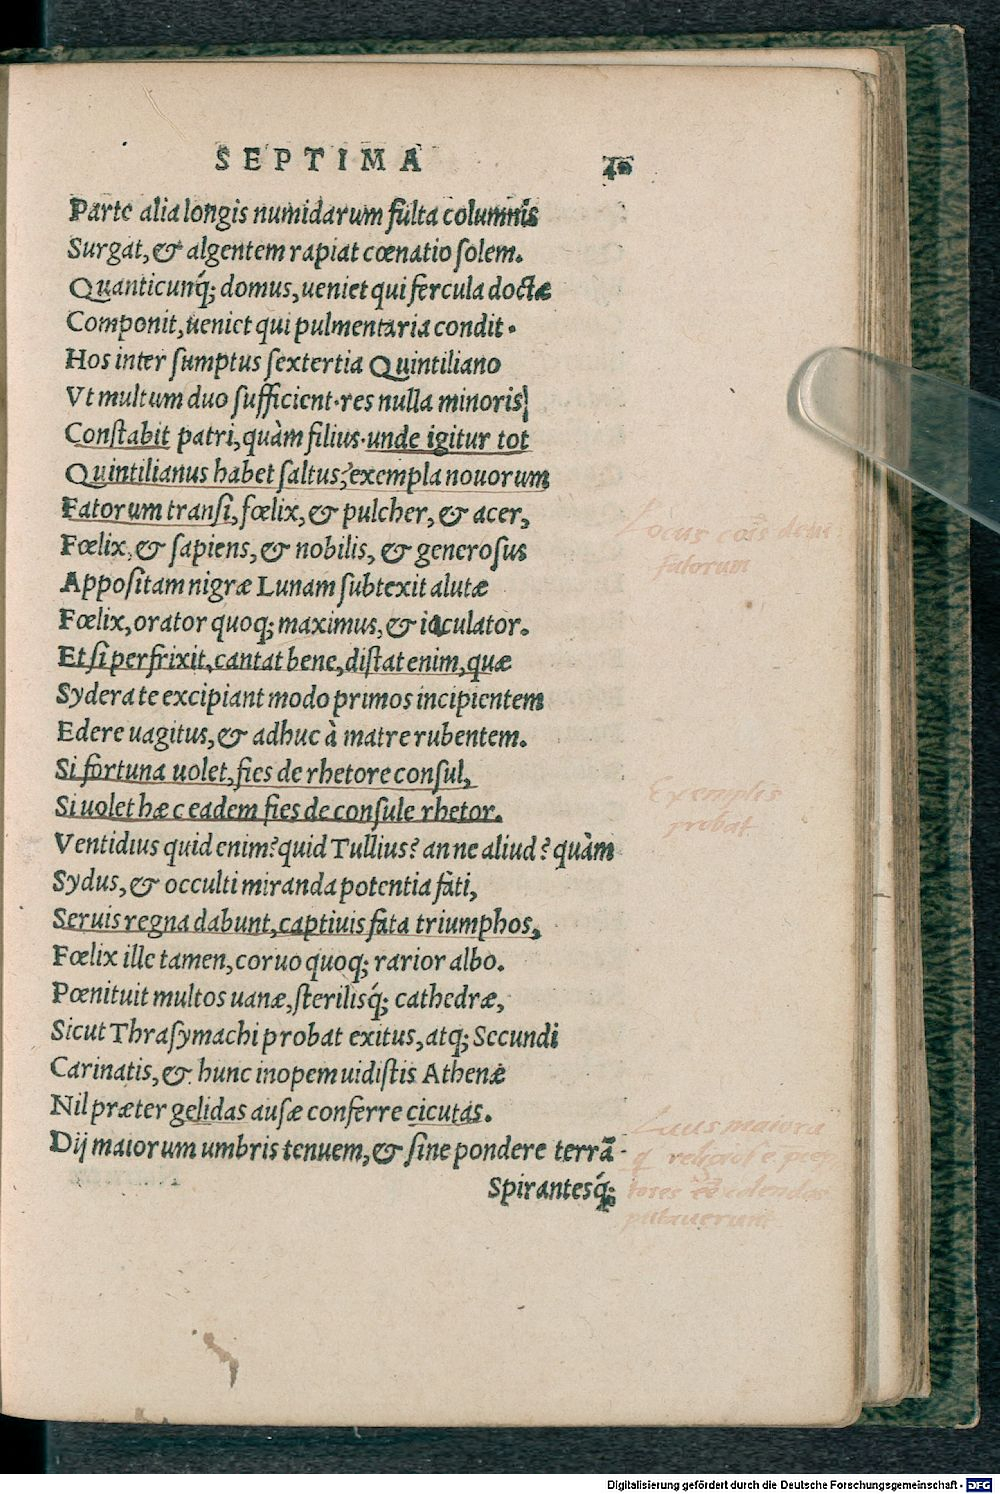 SEPTIMA 40
Parte alia longis numidarum fulta columnis
Surgat, & algentem rapiat cœnatio solem.
Quanticunq́; domus, ueniet qui fercula doctæ
Componit, ueniet qui pulmentaria condit.
Hos inter sumptus sextertia Quintiliano
Vt multum duo sufficient. res nulla minoris
Constabit patri, quàm filius. unde igitur tot
Quintilianus habet saltus? exempla nouorum
Fatorum transi, fœlix, & pulcher, & acer,
Fœlix, & sapiens, & nobilis, & generosus
Appositam nigræ Lunam subtexit alutæ
Fœlix, orator quoq; maximus, & iaculator.
Et si perfrixit, cantat bene, distat enim, quæ
Sydera te excipiant modo primos incipientem
Edere uagitus, & adhuc à matre rubentem.
Si fortuna uolet, fies de rhetore consul,
Si uolet hæc eadem fies de consule rhetor.
Ventidius quid enim? quid Tullius? an ne aliud? quàm
Sydus, & occulti miranda potentia fati,
Seruis regna dabunt, captiuis fata triumphos,
Fœlix ille tamen, coruo quoq; rarior albo.
Pœnituit multos uanæ, sterilisq́; cathedræ,
Sicut Thrasymachi probat exitus, atq; Secundi
Carinatis, & hunc inopem uidistis Athenæ
Nil præter gelidas ausæ conferre cicutas.
Dij maiorum umbris tenuem, & sine pondere terrã.
Spirantesq́;
Locus cõis
fatorum
Exemplis
probat
Laus maiorũ
putauerunt
Digitalisierung gefördert durch die Deutsche Forschungsgemeinschaft - DFG